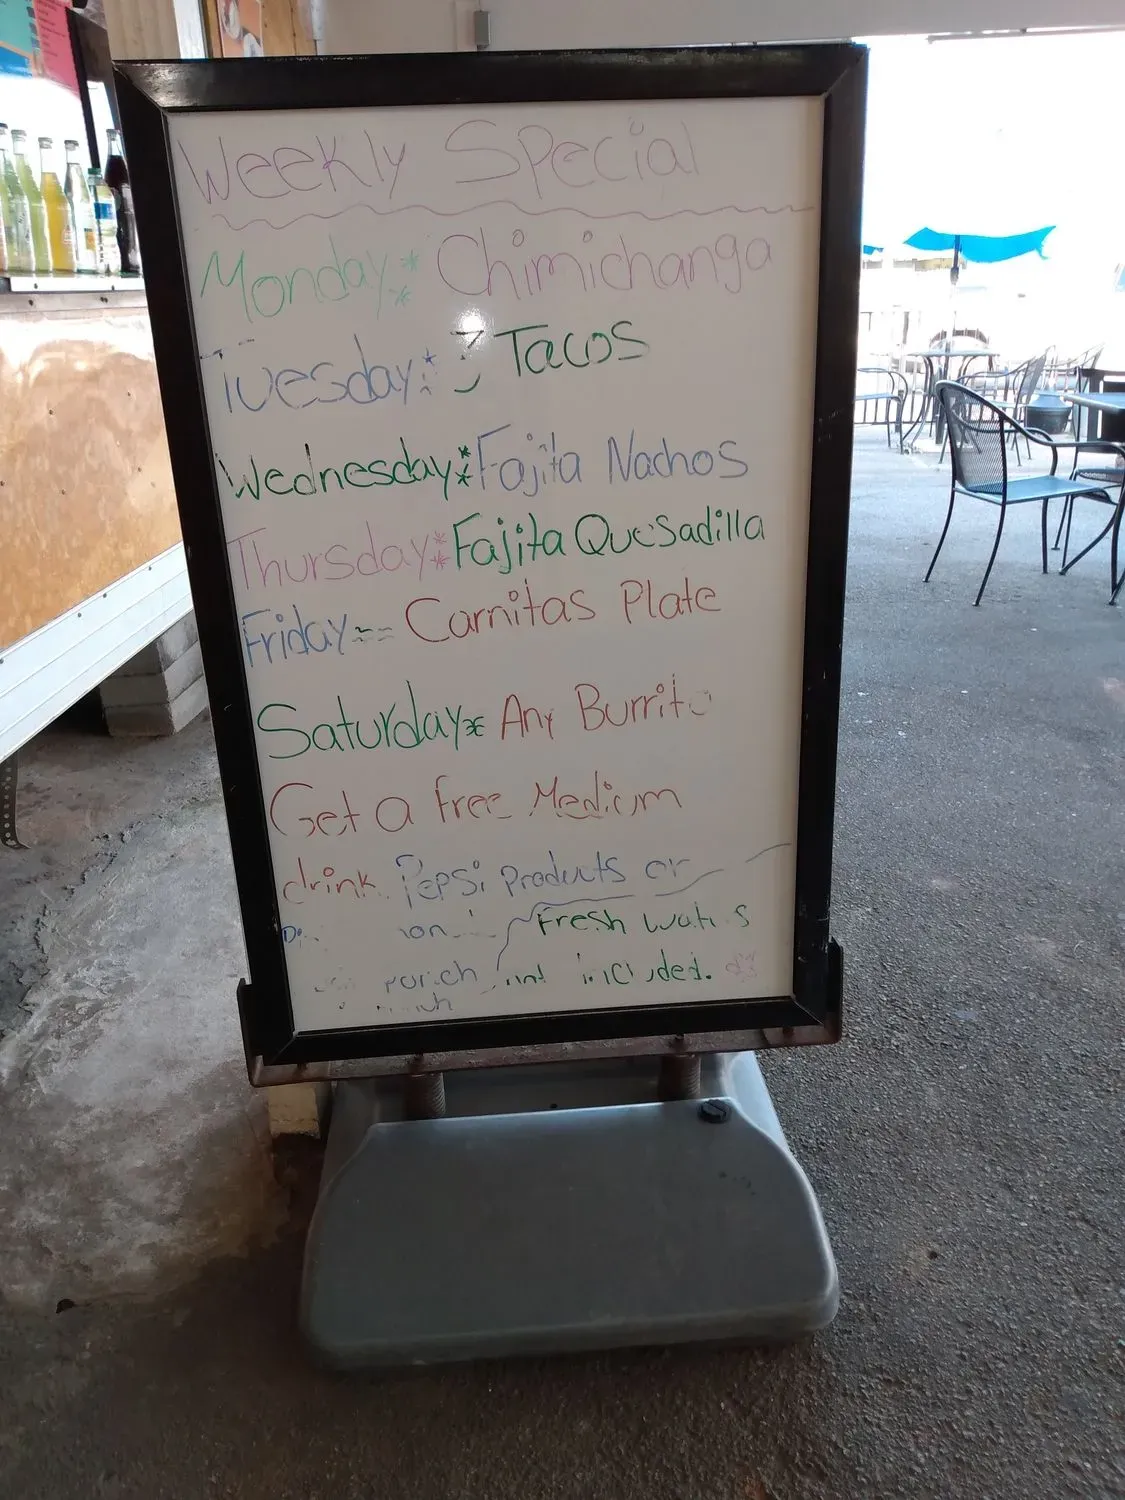 Weekly Special
Monday: Chimichanga
Tuesday: 3 Tacos
Wednesday: Fajita Nachos
Thursday: Fajita Quesadilla
Friday== Carnitas Plate
Saturday: Any Burrito
Get a free Medium
drink. Pepsi products or
Fresh
included.